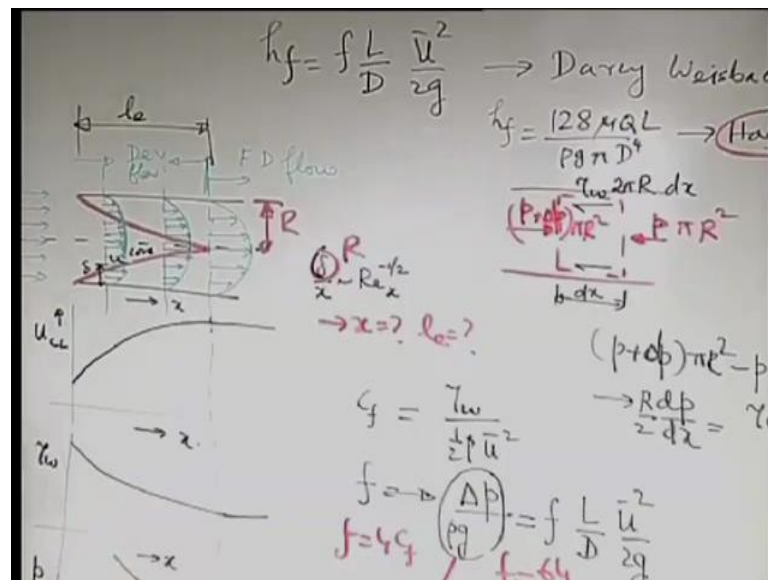 hf = f L/D ū²/2g → Darcy Weisba
hf = 128 μQL / ρgπD⁴ → Ha
le
Dev flow
F D flow
τw 2πR dx
R
(p+dp)πR²
p πR²
δ
u core
→ x
δ/x ~ Re_x^-1/2
R
dx
→ x=? le=?
u_CL
(p+dp)πR² - p
→ R/2 dp/dx = τ
→ x.
Cf = τw / ½ρū²
τw
f → Δp/ρg = f L/D ū²/2g
f = 4Cf
f = 64
→ x
p